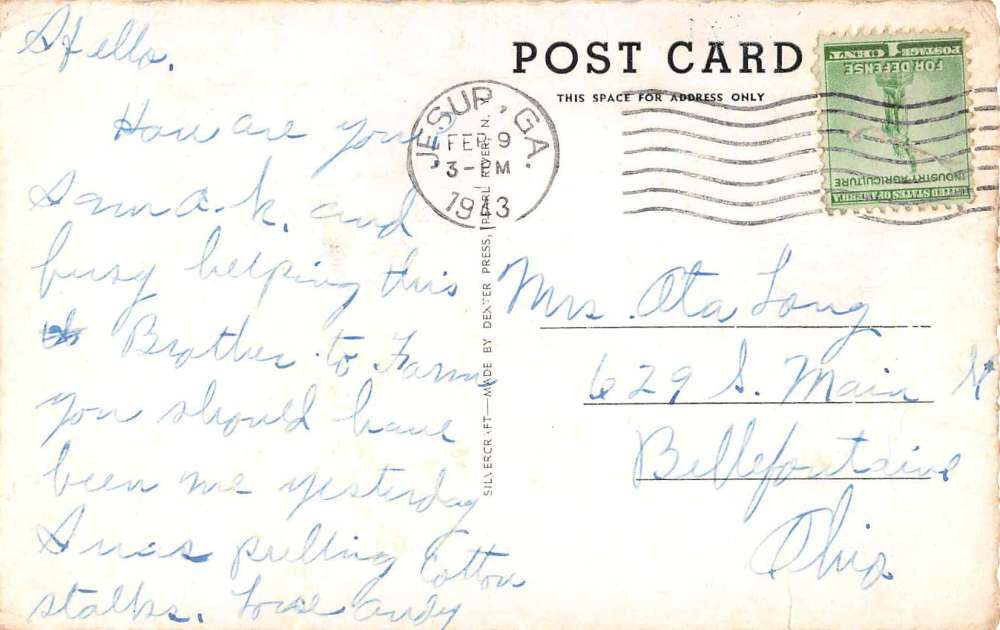 Hello.
How are you
I am O.K. and
busy helping this
Brother to Farm
you should have
been me yesterday
I was pulling Cotton
stalks. Love Andy
POST CARD
THIS SPACE FOR ADDRESS ONLY
JESUP, GA.
FEB 9
3- PM
1943
SILVERCRAFT—MADE BY DEXTER PRESS, PEARL RIVER, N.
POSTAGE 1 CENT
FOR DEFENSE
INDUSTRY AGRICULTURE
UNITED STATES OF AMERICA
Mrs. Ota Long
629 S. Main
Bellefontaine
Ohio